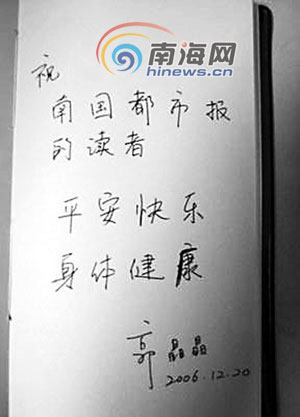 南海网
hinews.cn
祝
南国都市报
的读者
平安快乐
身体健康
郭晶晶
2006.12.20